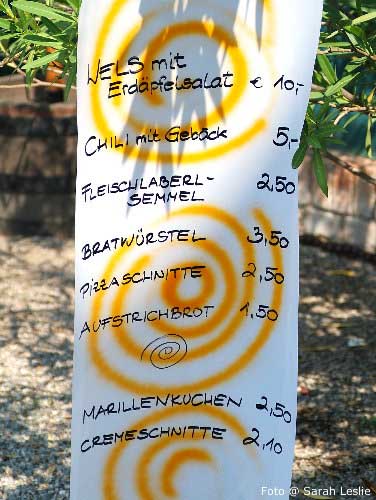 WELS mit
Erdäpfelsalat € 10,-
CHILI mit Gebäck 5,-
FLEISCHLABERL-
SEMMEL 2,50
BRATWÜRSTEL 3,50
PIZZASCHNITTE 2,50
AUFSTRICHBROT 1,50
MARILLENKUCHEN 2,50
CREMESCHNITTE 2,10
Foto @ Sarah Leslie